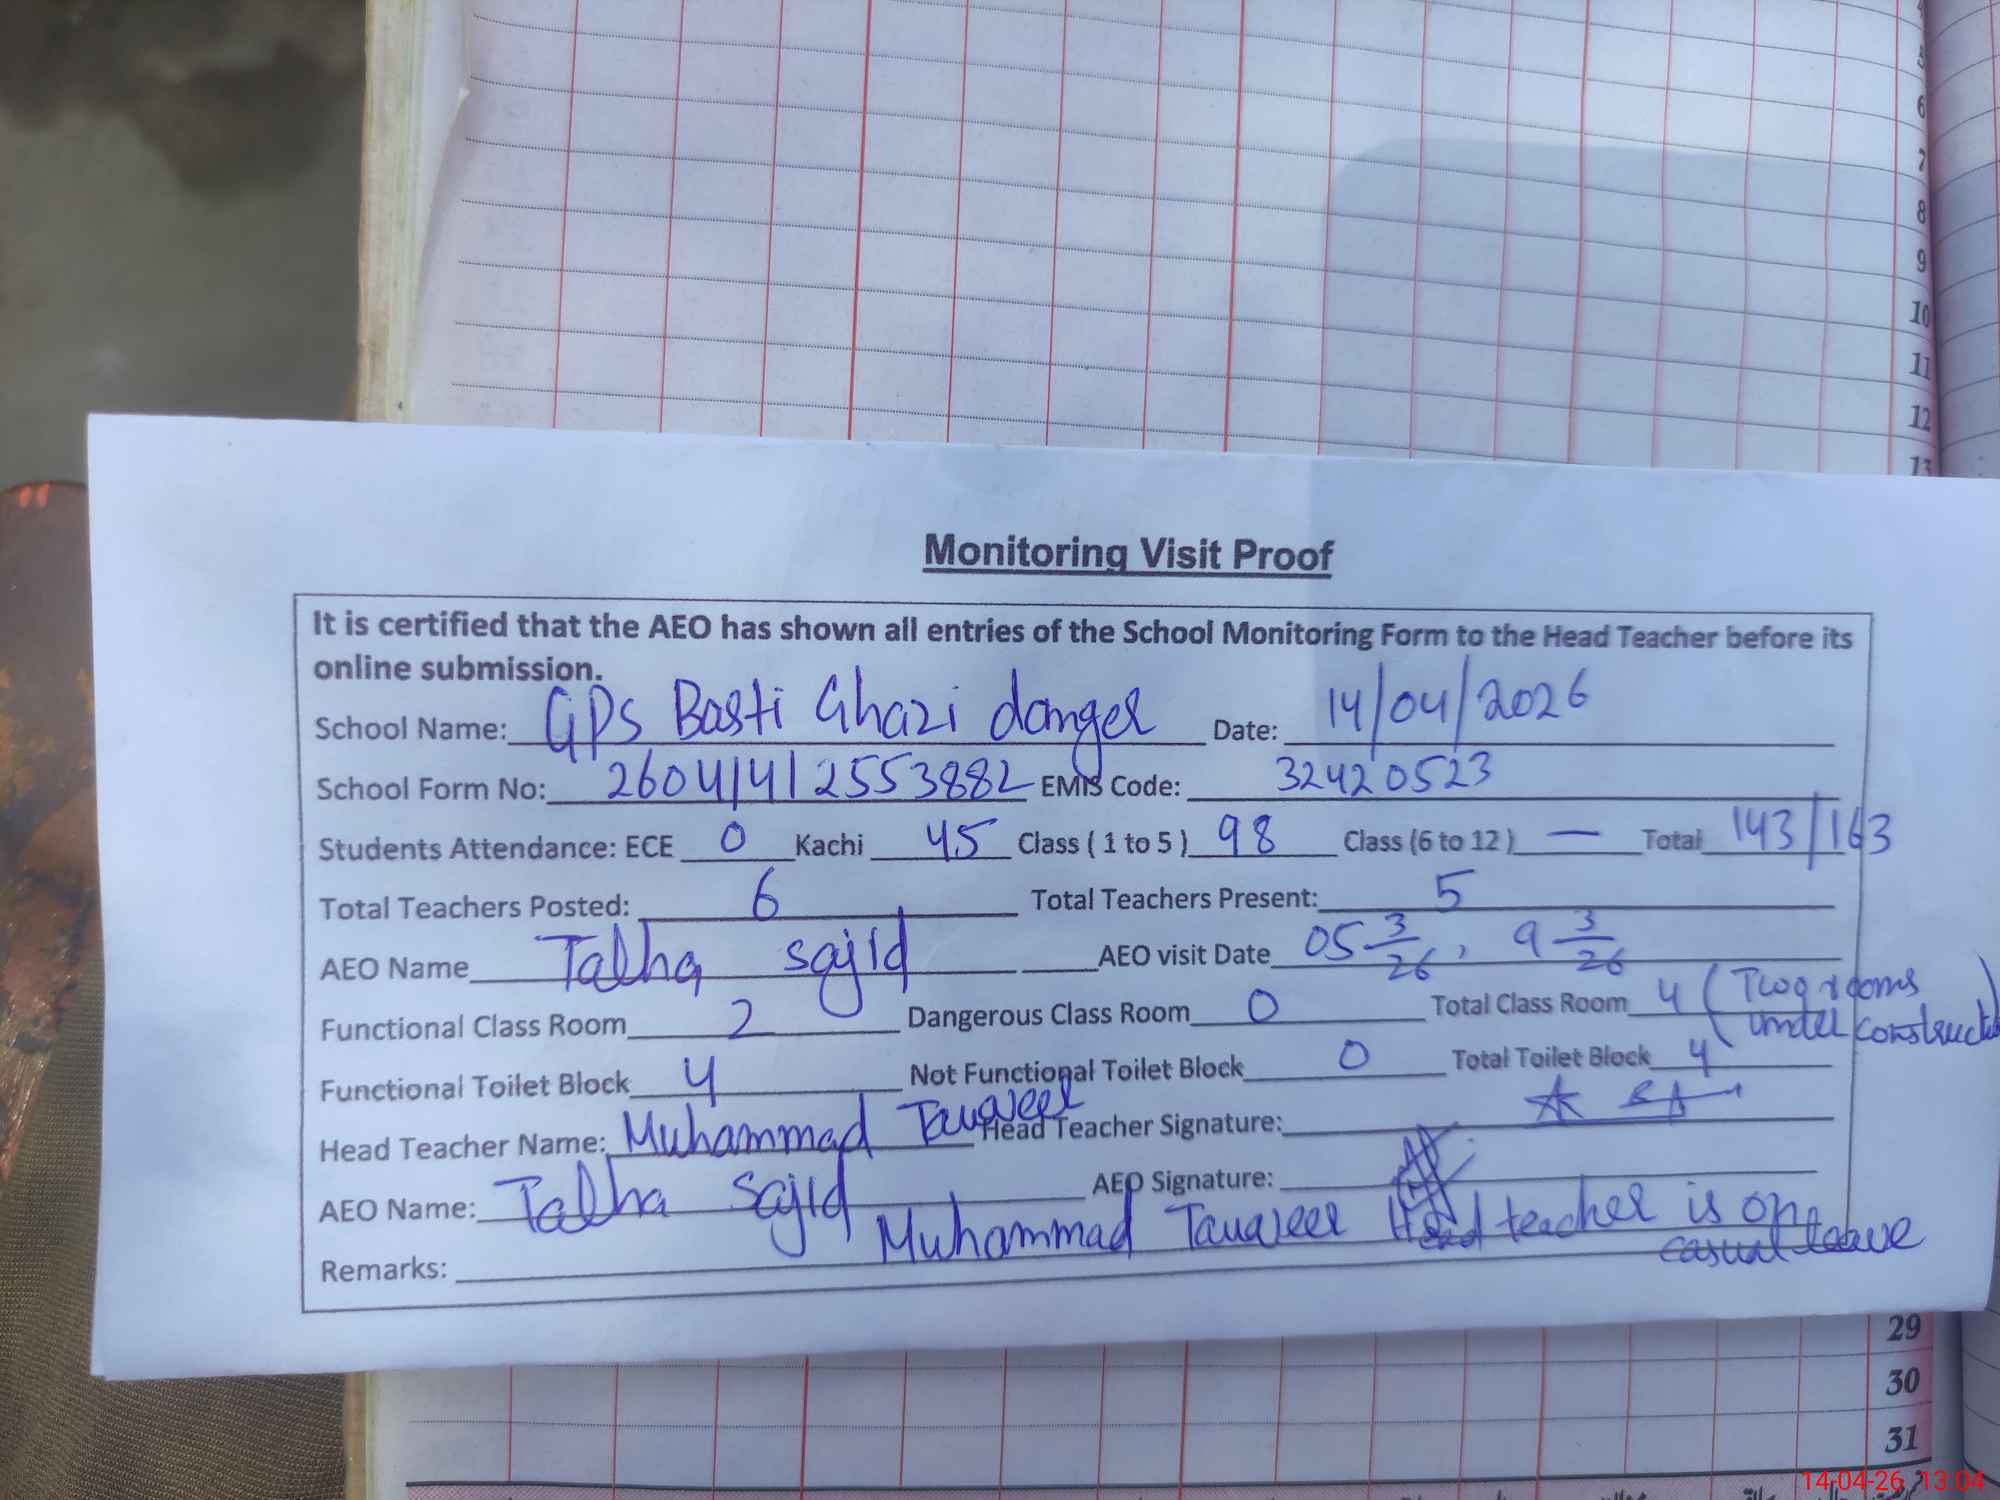 5
6
7
8
9
10
11
12
13
Monitoring Visit Proof
It is certified that the AEO has shown all entries of the School Monitoring Form to the Head Teacher before its
online submission.
School Name: GPS Basti Ghazi danger Date: 14/04/2026
School Form No: 2604/4/2553882 EMIS Code: 32420523
Students Attendance: ECE 0 Kachi 45 Class ( 1 to 5 ) 98 Class (6 to 12 ) — Total 143/163
Total Teachers Posted: 6 Total Teachers Present: 5
AEO Name Talha sajid AEO visit Date 05 3/26, 9 3/26
Functional Class Room 2 Dangerous Class Room 0 Total Class Room 4 ( rooms
under construct
Functional Toilet Block 4 Not Functional Toilet Block 0 Total Toilet Block 4
Head Teacher Name: Muhammad Tanveer Head Teacher Signature:
AEO Name: Talha sajid AEO Signature:
Remarks: Muhammad Tanveer Head teacher is on
casual leave
29
30
31
14-04-26 13:04